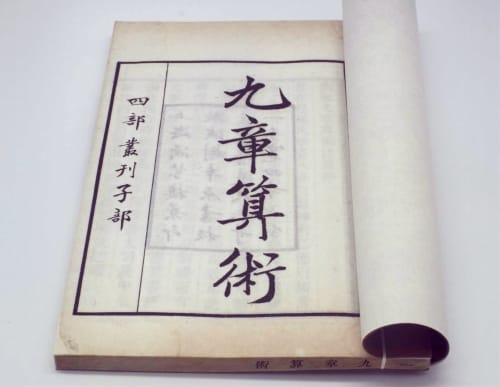 九章算術
四部叢刊子部
九章算術